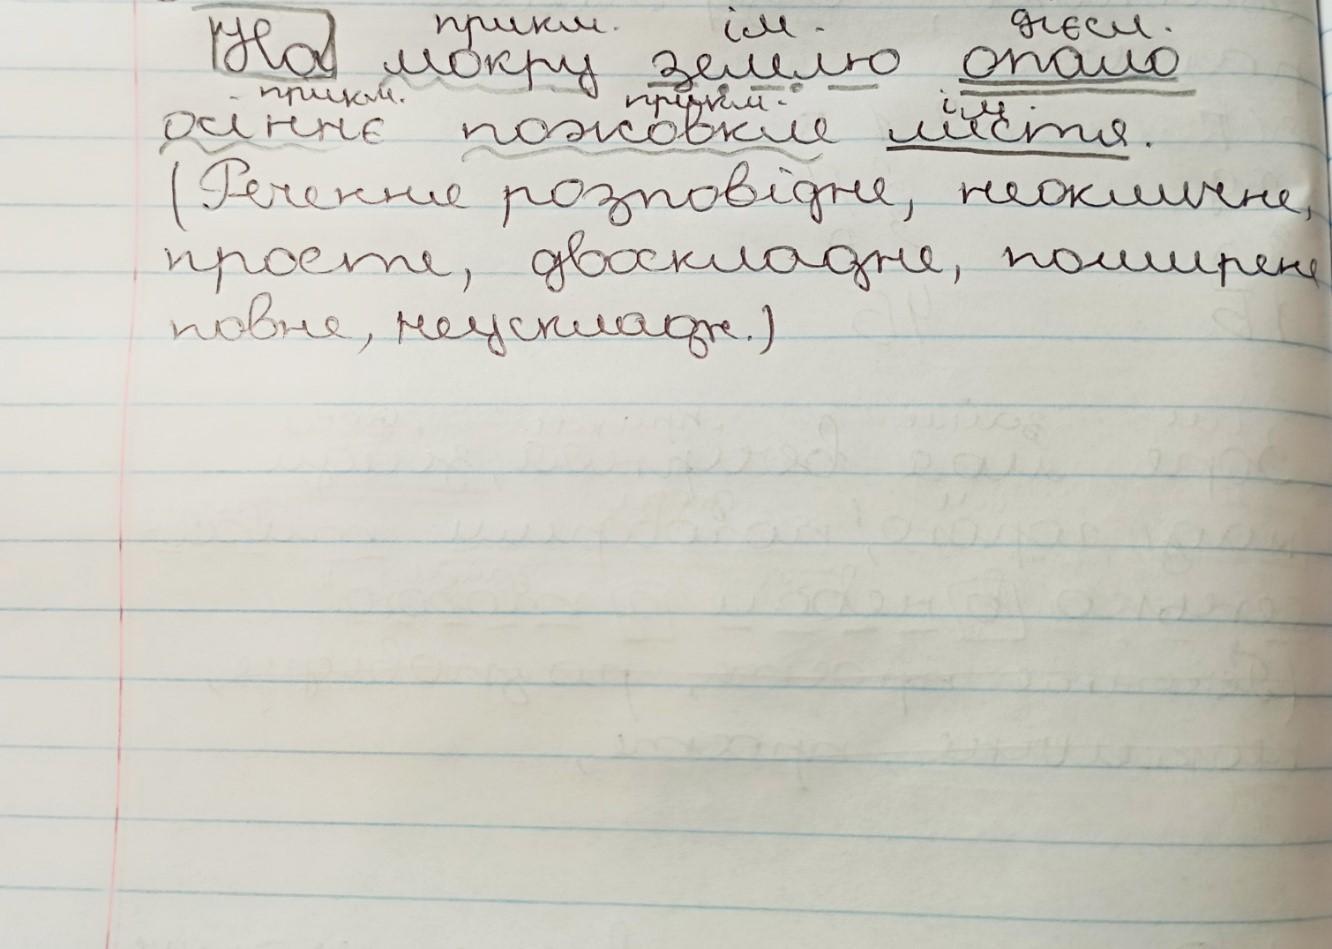 прикм. ім. дієсл.
На мокру землю опало
прикм. прикм. ім.
осіннє пожовкле листя.
(Речення розповідне, неокличне,
просте, двоскладне, поширене
повне, неускладн.)